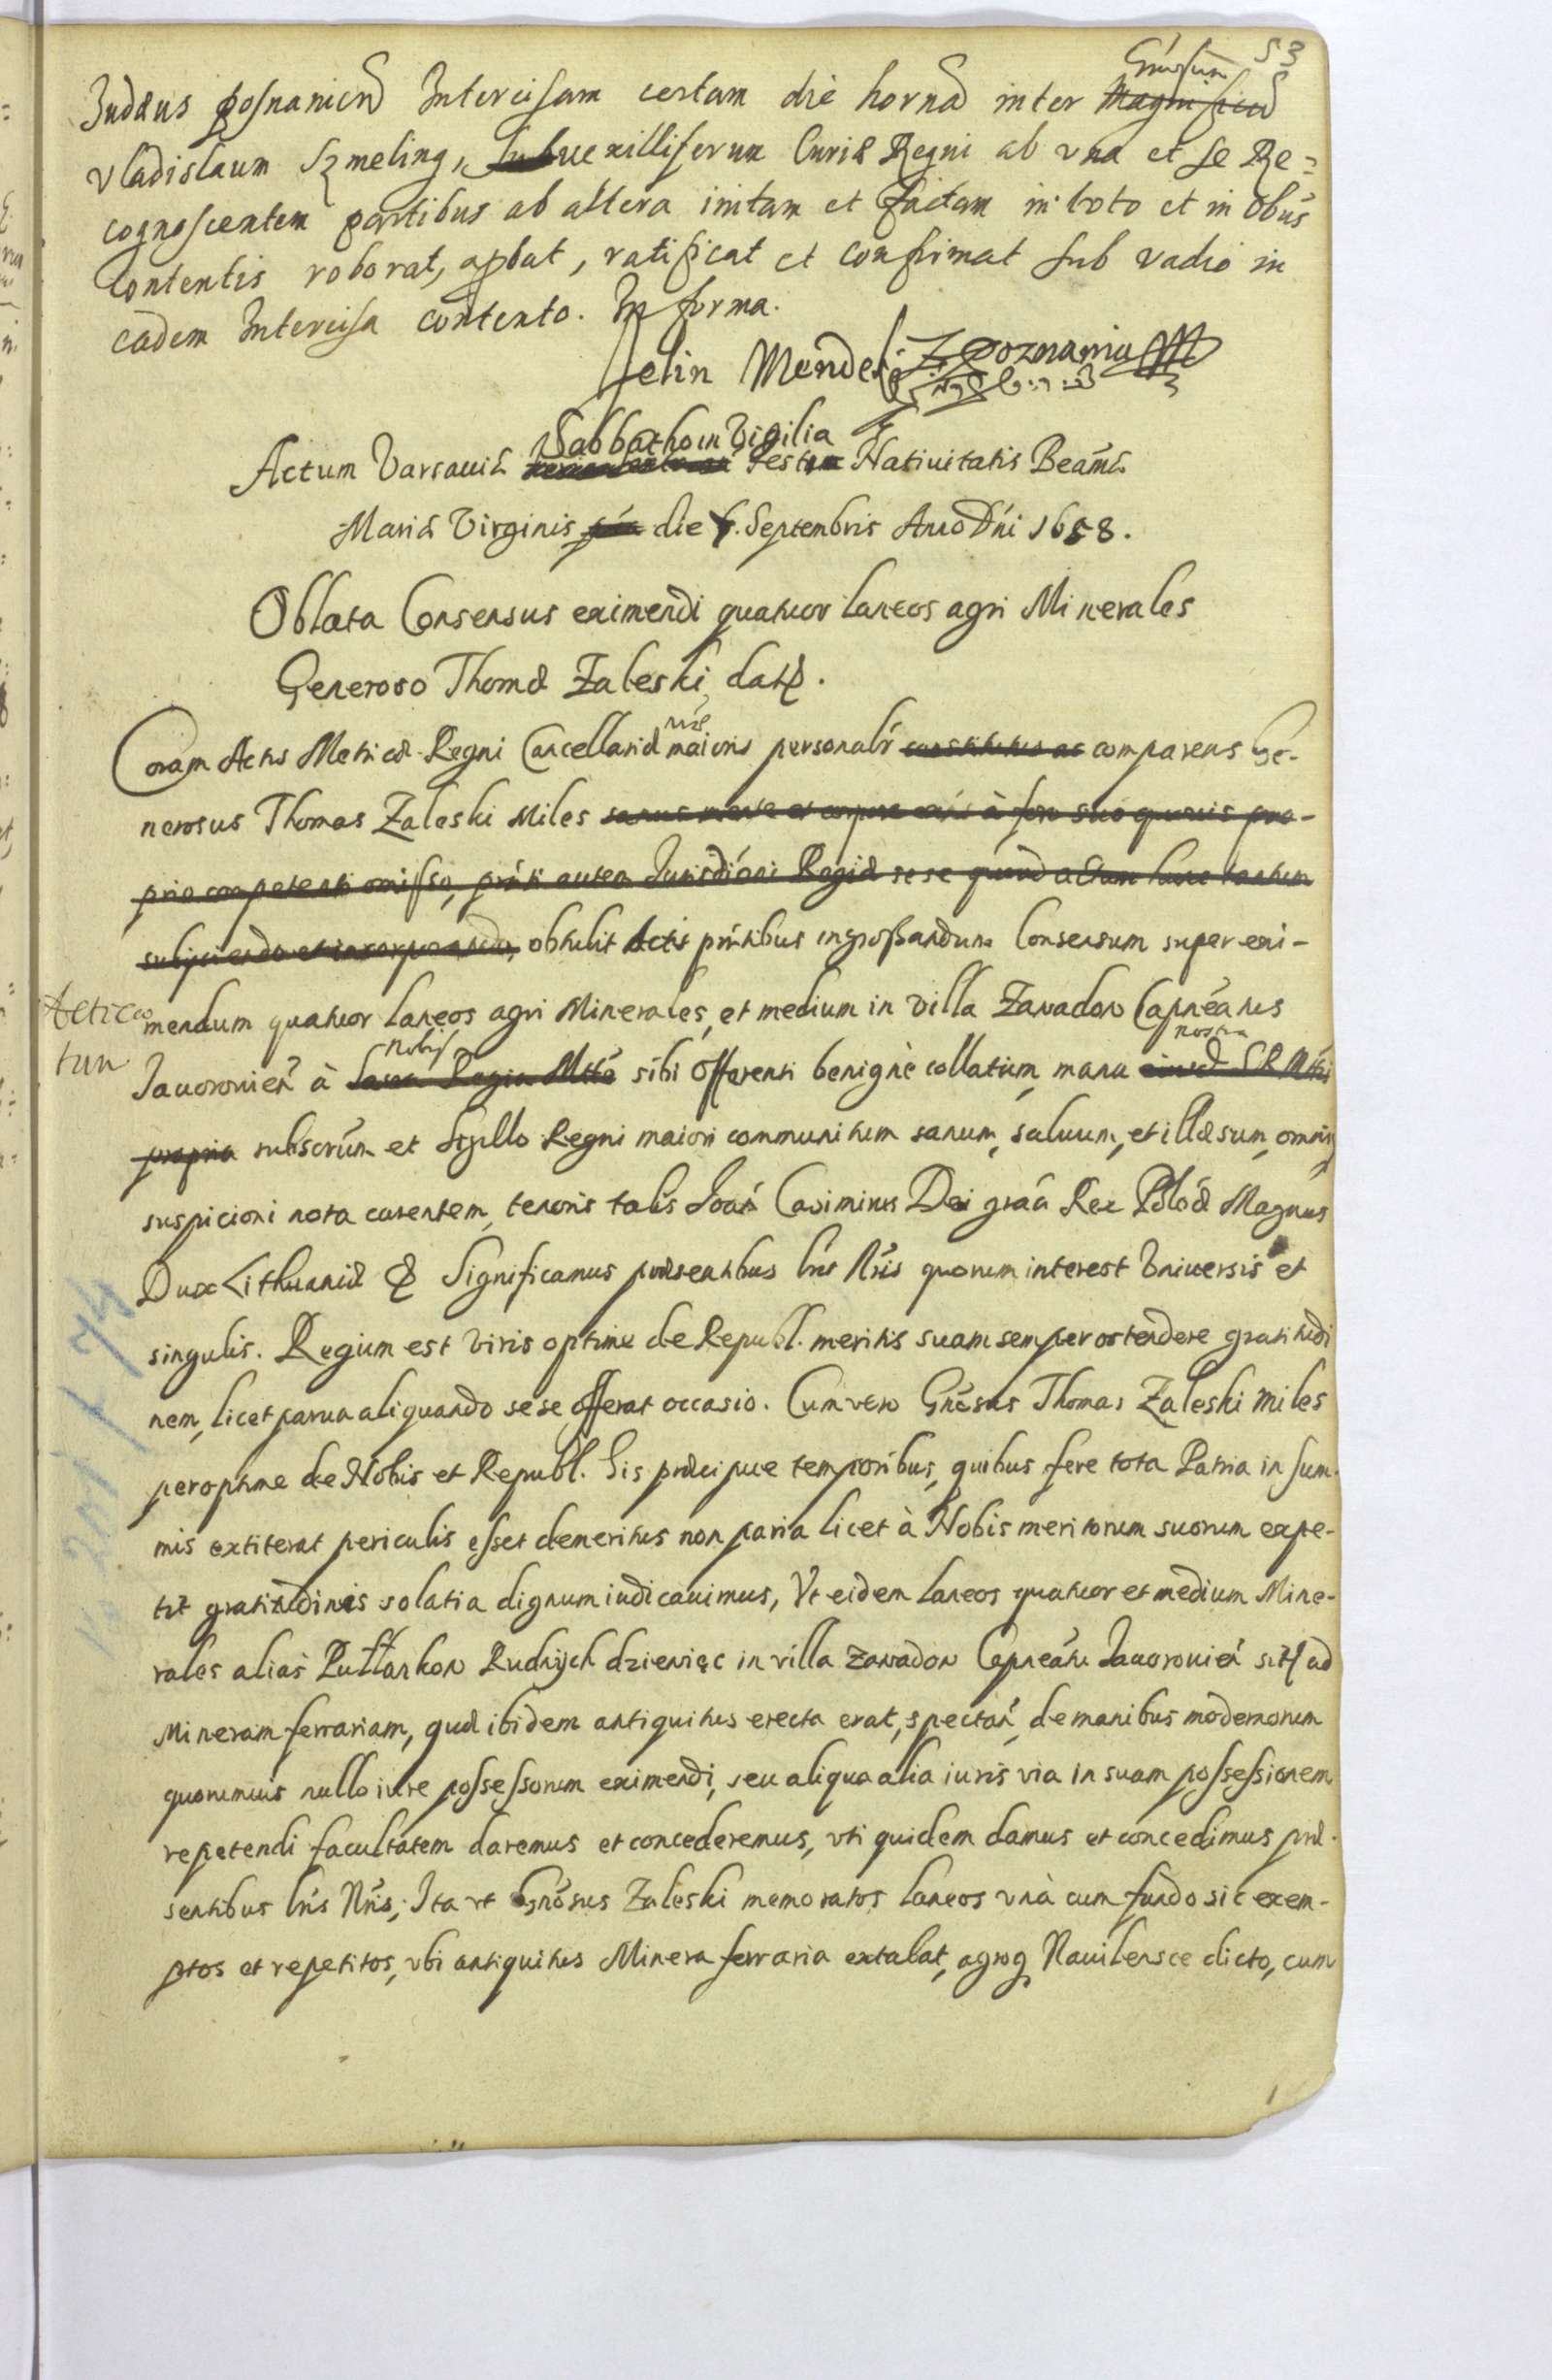 53
Judæus posnanien Intercisam certam die horna inter Gnosum Magnificu
Vladislaum Szmeling, Subvexilliferum Curiæ Regni ab vna et se Re=
cognoscentem partibus ab altera initam et factam in toto et in Obus
contentis roborat, apbat, ratificat et confirmat sub vadio in
eadem Intercisa contento. In forma.
Selin Mendel Z Poznania
Sabbatho in Vigilia
Actum Varsauiæ Festi Natiuitatis Beatmæ
Mariæ Virginis die 7. Septembris Anno Dni 1658.
Oblata Consensus eximendi quatuor laneos agri Minerales
Generoso Thomæ Zaleski dat.
Coram Actis Metricæ Regni Cancellariæ nræ maioris personalr constitutus ac comparens Ge-
nerosus Thomas Zaleski Miles sanus mente et corpore à foro suo quouis pro-
prio competenti omisso, prnti autem Jurisdioni Regiæ sese quoad actum hunc tantum
subijciendo et incorporando, obtulit Actis prntibus ingrossandum Consensum super exi-
mendum quatuor laneos agri Minerales, et medium in villa Zawadow Capneatus
Jaworowien à Nobis Sacra Regia Mtte sibi Offerenti benignè collatum, manu nostra eiusd SRMttis
propria subscrum et Sigillo Regni maiori communitum sanum, saluum, et illæsum, omniq
suspicioni nota carentem, tenoris talis Joan Casimirus Dei graa Rex Poloæ Magnus
Dux Lithuaniæ & Significamus præsentibus lris Nris quorum interest Vniuersis et
singulis. Regium est viris optime de Republ. meritis suam semper ostendere gratitudi
nem, licet parua aliquando sese offerat occasio. Cum vero Gnosus Thomas Zaleski Miles
peroptime de Nobis et Republ. his præcipue temporibus, quibus fere tota Patria in sum-
mis extiterat periculis esset demeritus non paria licet à Nobis meritorum suorum expe-
tit gratitudinis solatia dignum iudicauimus, Vt eidem laneos quatuor et medium Mine-
rales alias Pułłankow Rudnych dziewięc in villa Zawadow Capneatu Jaworowien sit ad
Mineram ferrariam, quæ ibidem antiquitus erecta erat, spectan, de manibus modernorum
quorumuis nullo iure possessorum eximendi, seu aliqua alia iuris via in suam possessionem
repetendi facultatem daremus et concederemus, vti quidem damus et concedimus præ-
sentibus lris Nris; Ita vt Gnosus Zaleski memoratos laneos vnà cum fundo sic exem-
ptos et repetitos, vbi antiquitus Minera ferraria extabat, agroq Nawilensce dicto, cum